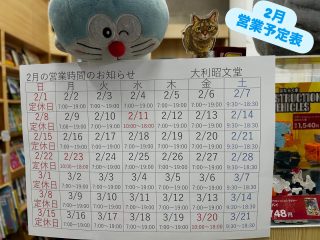 2月
営業予定表
2月の営業時間のお知らせ 大利昭文堂
日 月 火 水 木 金 土
2/1 2/2 2/3 2/4 2/5 2/6 2/7
定休日 7:00～19:00 7:00～19:00 7:00～19:00 7:00～19:00 7:00～19:00 9:30～18:30
2/8 2/9 2/10 2/11 2/12 2/13 2/14
定休日 7:00～19:00 7:00～19:00 10:00～18:00 7:00～19:00 7:00～19:00 9:30～18:30
2/15 2/16 2/17 2/18 2/19 2/20 2/21
定休日 7:00～19:00 7:00～19:00 7:00～19:00 7:00～19:00 7:00～19:00 9:30～18:30
2/22 2/23 2/24 2/25 2/26 2/27 2/28
定休日 10:00～18:00 7:00～19:00 7:00～19:00 7:00～19:00 7:00～19:00 9:30～18:30
3/1 3/2 3/3 3/4 3/5 3/6 3/7
定休日 7:00～19:00 7:00～19:00 7:00～19:00 7:00～19:00 7:00～19:00 9:30～18:30
3/8 3/9 3/10 3/11 3/12 3/13 3/14
定休日 7:00～19:00 7:00～19:00 7:00～19:00 7:00～19:00 7:00～19:00 9:30～18:30
3/15 3/16 3/17 3/18 3/19 3/20 3/21
定休日 7:00～19:00 7:00～19:00 7:00～19:00 7:00～19:00 10:00～18:00 9:30～18:30
CONSTRUCTION
VEHICLES
11,540円
48円